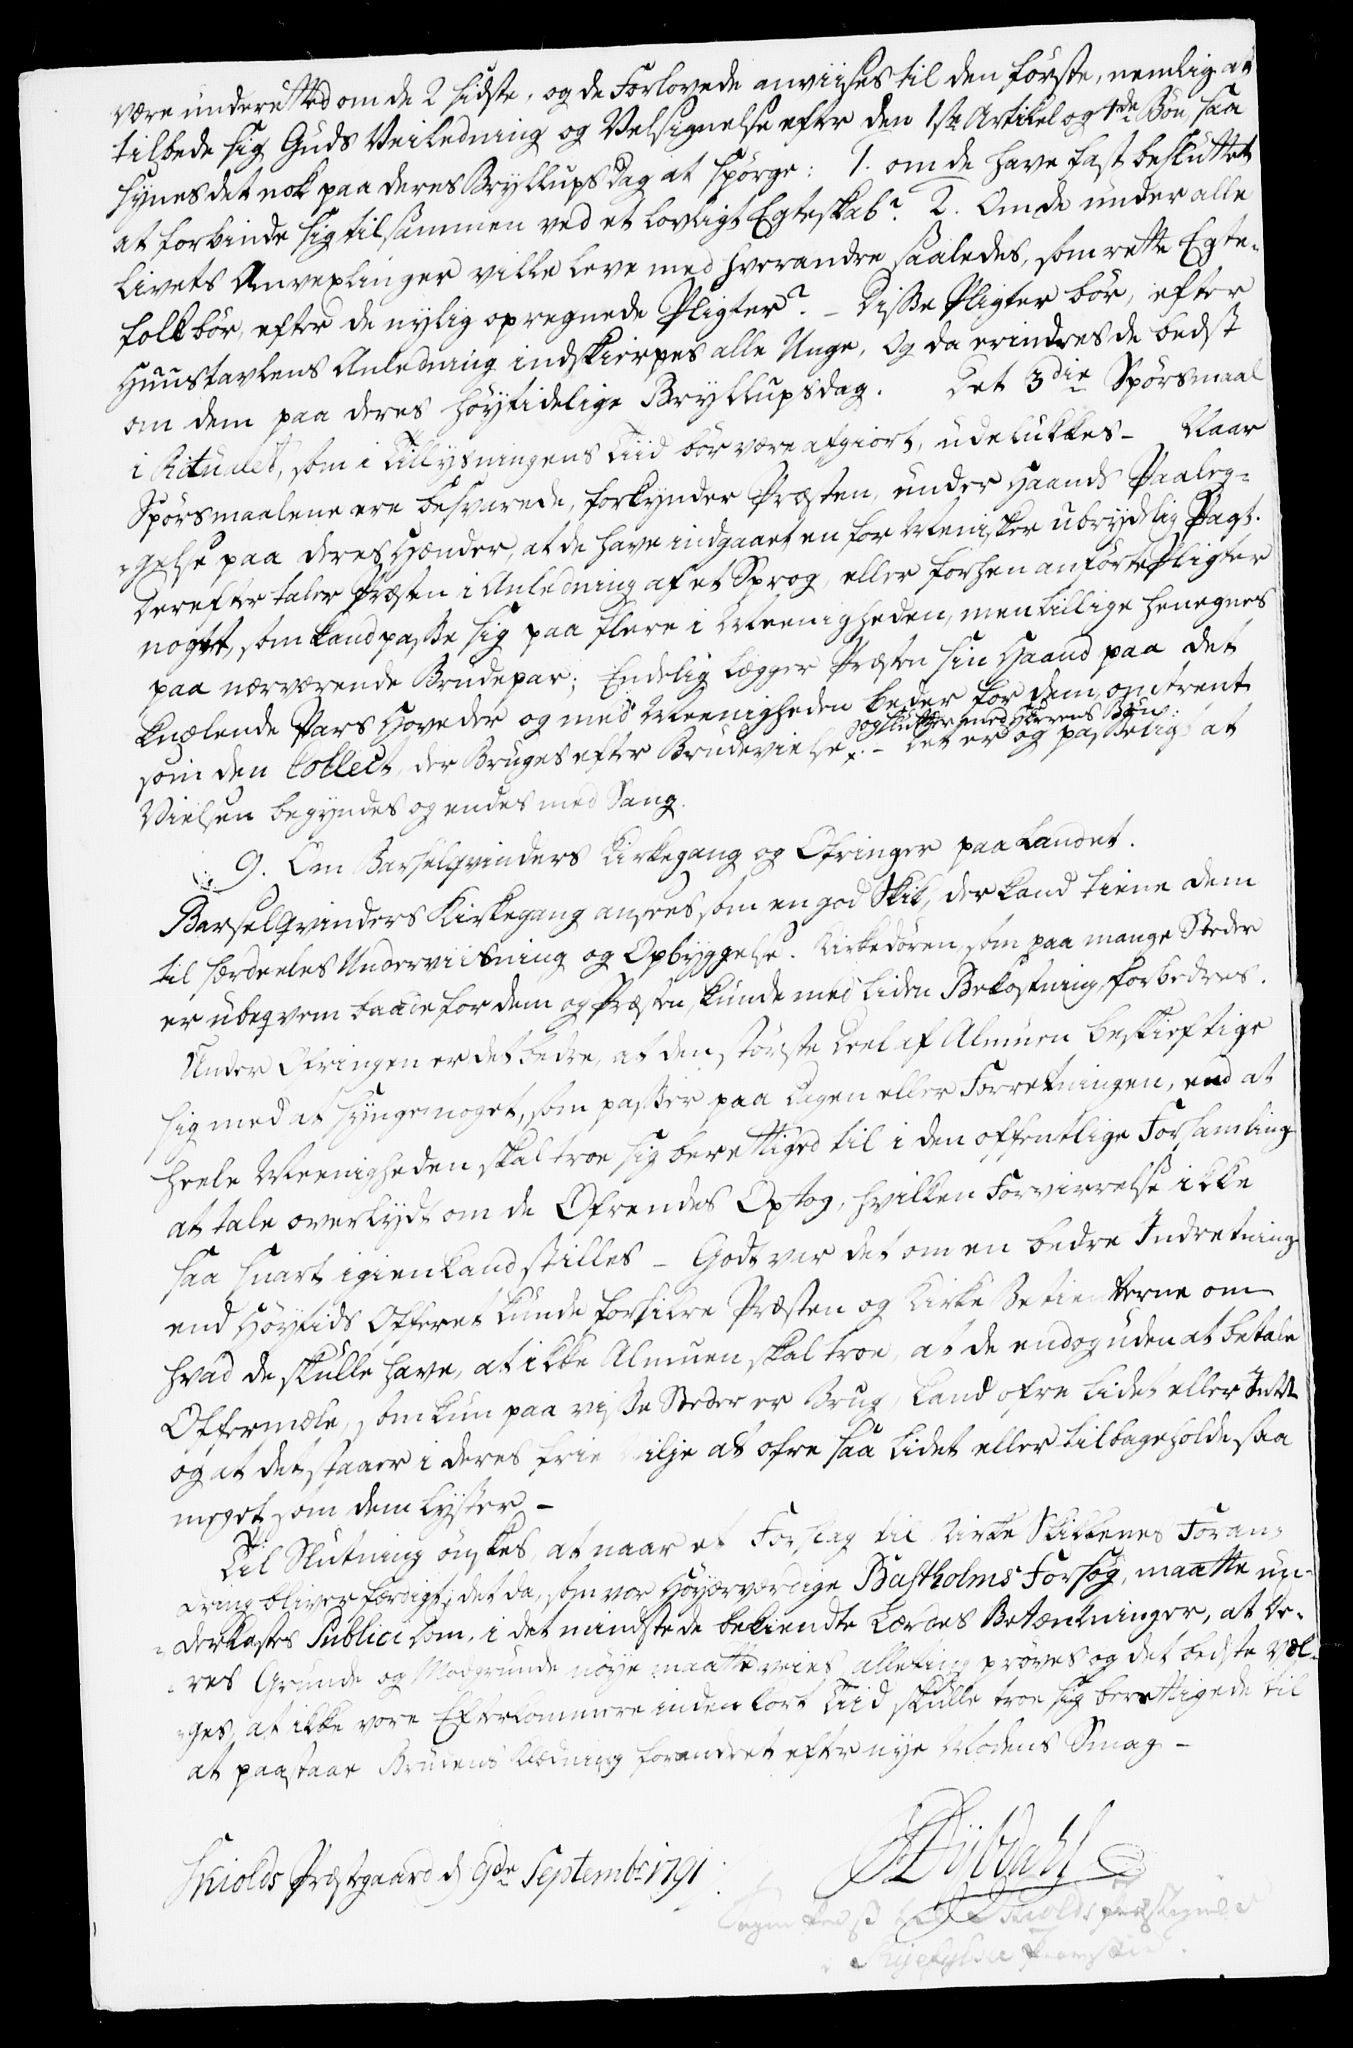 være underetted om de 2 sidste, og de Forlovede anviises til den første, nemlig at
tilbede sig Guds Veiledning og Velsignelse efter den 1ste Artikel og 4de Bøn saa
synes det nok paa deres Bryllups Dag at spørge: 1. om de have fast besluttet
at forbinde sig tilsammen ved et lovligt Egteskab? 2. Om de under alle
Livets Omvexlinger ville leve med hverandre saaledes, som rette Egte-
folk bør, efter de nylig opregnede Pligter? - Disse Pligter bør, efter
Huustavlens Anledning indskierpes alle Unge, og da erindres de bedst
om dem paa deres høytidelige Bryllupsdag. Det 3die Spørsmaal
i Ritualet, som i Tillysningens Tiid bør være afgiort, udelukkes - Naar
Spørsmaalene ere besvarede, forkynder Præsten, under Haands Paaleg-
gelse paa deres Hænder, at de have indgaaet en for Menisker ubrydelig Pagt.
Derefter taler Præsten i Anledning af et Sprog, eller forhen anførte Pligter
noget, som kand passe sig paa flere i Meenigheden, men tillige henegnes
paa nærværende Brudepar; Endelig lægger Præsten sin Haand paa det
knælende Pars Hoveder og med Meenigheden beder for dem, omtrent
og slutter med Herrens Bøn:
som den Collect, der Bruges efter Brudevielse. - Det er og passeligt at
Vielsen begyndes og endes med Sang.
9. Om Barselqvinders Kirkegang og Ofringer paa Landet.
Barselqvinders Kirkegang ansees som en god Skik, der kand tiene dem
til særdeeles Underviisning og Opbyggelse. Kirkedøren, som paa mange Steder
er ubeqvem baade for dem og Præsten kunde med liden Bekostning forbedres.
Under Ofringen er det bedre, at den største Deel af Almuen beskieftige
sig med at synge noget, som passer paa Dagen eller Forretningen, end at
heele Meenigheden skal troe sig berettiged til i den offentlige Forsamling
at tale overlydt om de Ofrendes Optog, hvilken Forvirrelse ikke
saa snart igien kand stilles - Godt var det om en bedre Indretning
end Høytids Offeret kunde forsikre Præsten og Kirke Betienterne om
hvad de skulle have, at ikke Almuen skal troe, at de endog uden at betale
Offermæle, som kun paa visse Steder er Brug, kand ofre lidet eller Intet
og at det staaer i deres frie Vilje at ofre saa lidet eller tilbageholde saa
meget som dem lyster -
Til Slutning ønskes, at naar et Forslag til Kirke Skikkenes Foran-
dring bliver færdigt, det da, som vor Høyærværdige Bastholms Forsøg, maatte un-
derkastes Publici Dom, i det mindste de bekiendte Lærdes Betænkninger, at de-
res Grunde og Modgrunde nøye maatte veies, alleting prøves og det bedste væl-
ges, at ikke vore Efterkommere inden kort Tiid skulle troe sig berettigede til
at paastaae Brudens Klædning forandret efter nye Modens Smag -
Skiolds Præstegaard d 9de Septembr 1791
Dybdahl
Sogne Præst til Skiolds Præstegield